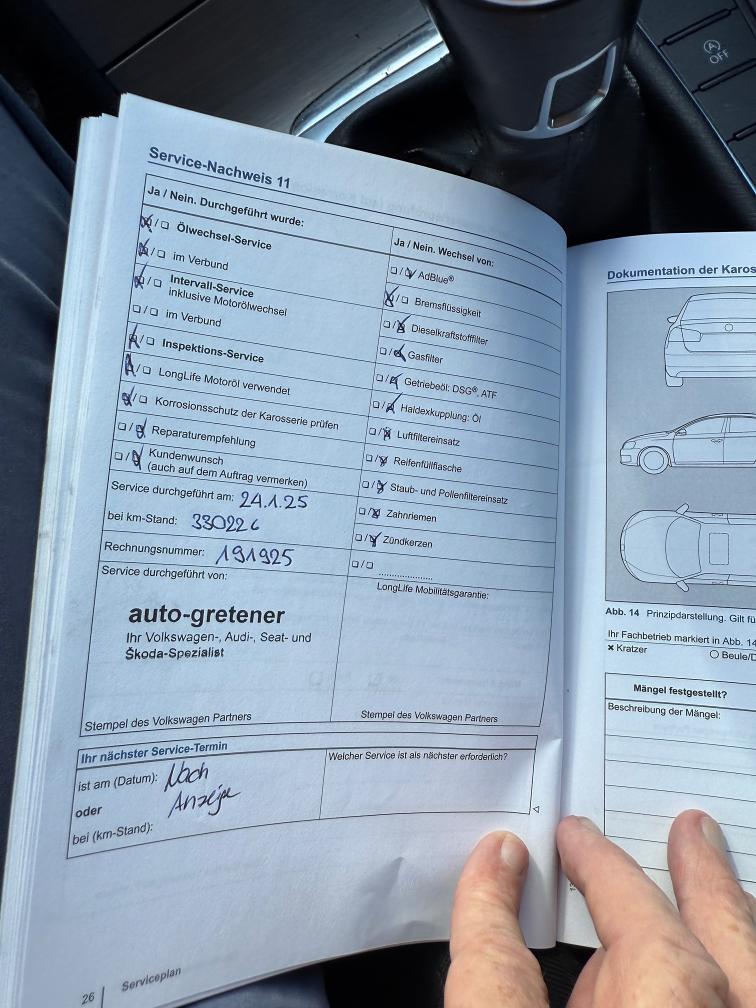 A
OFF
Service-Nachweis 11
Ja / Nein. Durchgeführt wurde:
Ölwechsel-Service
im Verbund
Intervall-Service
inklusive Motorölwechsel
im Verbund
Inspektions-Service
LongLife Motoröl verwendet
Korrosionsschutz der Karosserie prüfen
Reparaturempfehlung
Kundenwunsch
(auch auf dem Auftrag vermerken)
Service durchgeführt am: 24.1.25
bei km-Stand: 330226
Rechnungsnummer: 191925
Service durchgeführt von:
auto-gretener
Ihr Volkswagen-, Audi-, Seat- und
Škoda-Spezialist
Stempel des Volkswagen Partners
Ja / Nein. Wechsel von:
AdBlue®
Bremsflüssigkeit
Dieselkraftstofffilter
Gasfilter
Getriebeöl: DSG®, ATF
Haldexkupplung: Öl
Luftfiltereinsatz
Reifenfüllflasche
Staub- und Pollenfiltereinsatz
Zahnriemen
Zündkerzen
LongLife Mobilitätsgarantie:
Stempel des Volkswagen Partners
Ihr nächster Service-Termin
ist am (Datum): Nach
oder Anzeige
bei (km-Stand):
Welcher Service ist als nächster erforderlich?
26 Serviceplan
Dokumentation der Karos
Abb. 14 Prinzipdarstellung. Gilt fü
Ihr Fachbetrieb markiert in Abb. 14
× Kratzer
Beule/D
Mängel festgestellt?
Beschreibung der Mängel: